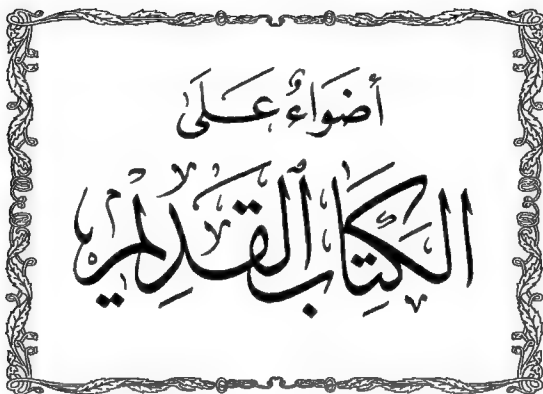 أضَوَاءٌ عَلَى
الكِتَابِ القَدِيمِ